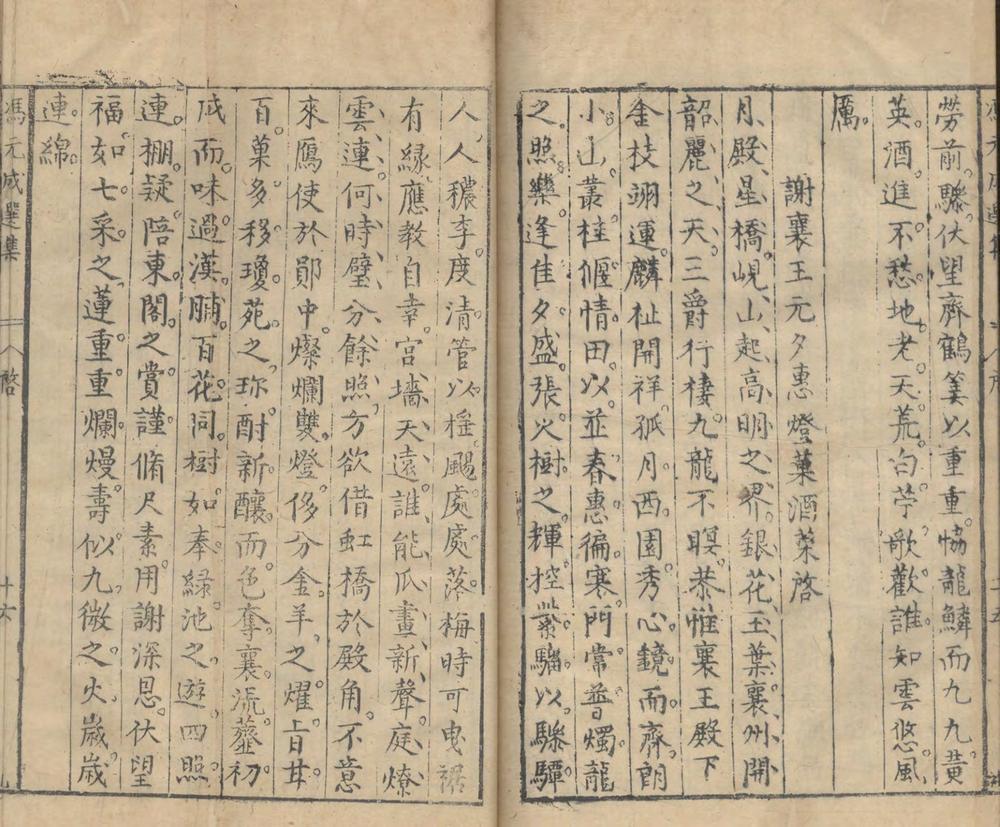 勞前驂。伏望齊鶴筭以重重。恊龍鱗而九九。黄
英。酒進。不愁地老。天荒。白苧歌歡。誰知雲悠風
厲。
謝襄王元夕惠燈菓酒菜啓
月、殿、星、橋。峴、山、起、高、明、之、界。銀、花、玉、葉。襄、州、開、
韶、麗、之、天。三爵行棲。九龍不暝。恭惟襄王殿下
金枝翊運。麟趾開祥。孤月西園。秀心鏡而齊朗
小山叢桂。偃情田以並春。惠徧寒門。常普燭龍
之照。樂逢佳夕。盛張火樹之輝。控紫騮以驂驔
人人穠李。度清管以榣颺。處處落梅。時可曳裾
有緣應教。自幸宮墻、天遠。誰、能、瓜、畫、新、聲。庭、燎、
雲、連。何、時、璧、分、餘、照、方欲借虹橋於殿角。不意
來鴈使於鄖中。燦爛雙燈。侈分金羊之燿。旨甘
百菓。多移瓊苑之珍。酎新釀而色奪襄流。虀初
咸而味過漢脯。百花同樹。如奉緑池之遊。四照
連棚。疑陪東閣之賞。謹脩尺素。用謝深恩。伏望
福如七采之蓮。重重爛熳。壽似九微之火。歲歲
連綿。
馮元成選集
八 啓
十六